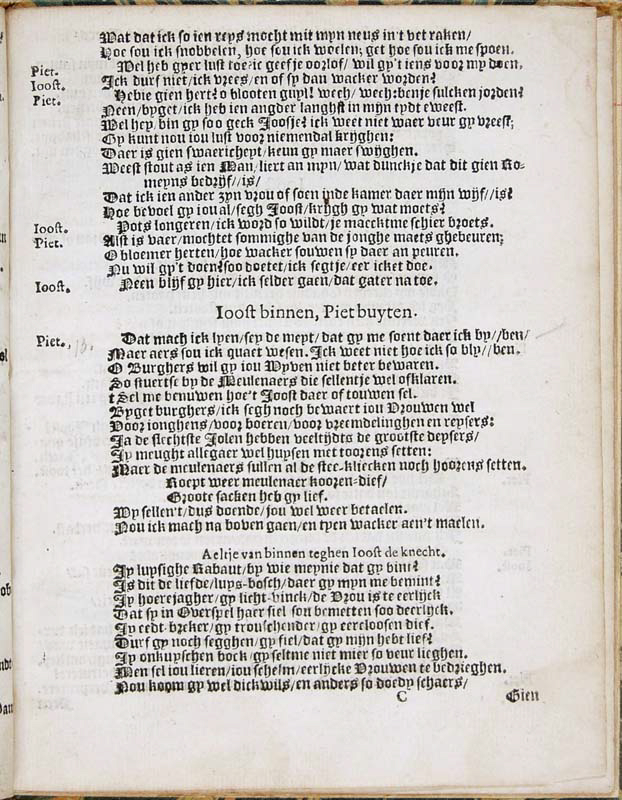 Wat dat ick so ien reys mocht mit myn neus in't vet raken/
Hoe sou ick snobbelen, hoe sou ick woelen; get hoe sou ick me spoen.
Piet. Wel heb gyer lust toe? ic geef je oorlof/ wil gy't iens voor my doen,
Ioost. Ick durf niet/ick vrees/en of sy dan wacker worden?
Piet. Hebje gien hert? o blooten guyl! wech/ wech: benje sulcken jorden?
Neen/byget/ick heb ien angder langhst in mijn tydt eweest.
Wel hey, bin gy soo geck Joosje? ick weet niet waer veur gy vreest;
Gy kunt nou iou lust voor niemendal krijghen:
Daer is gien swaericheyt/keun gy maer swyghen.
Weest stout as ien Man/liert an myn/wat dunckje dat dit gien Ro-
meyns bedrijf//is/
Dat ick ien ander zyn vrou of soen inde kamer daer mijn wijf//is?
Hoe bevoel gy iou al/segh Joost/krijgh gy wat moets?
Ioost. Pots longeren/ick word so wildt/je maecktme schier broets.
Piet. Alst is vaer/mochtet sommighe van de jonghe maets ghebeuren;
O bloemer herten/hoe wacker souwen sy daer an peuren.
Nu wil gy't doen? soo doetet/ick segtje/eer icket doe.
Ioost. Neen blijf gy hier/ick selder gaen/dat gater na toe.
Ioost binnen, Piet buyten.
Piet. Dat mach ick lyen/sey de meyt/dat gy me soent daer ick by//ben/
Maer aers sou ick quaet wesen. Ick weet niet hoe ick so bly//ben.
O Burghers wil gy iou Wyven niet beter bewaren.
So stuertse by de Meulenaers die sellentje wel ofklaren.
t Sel me benuwen hoe't Joost daer of touwen sel.
Byget burghers/ick segh noch bewaert iou Vrouwen wel
Voor ionghens/voor boeren/voor vreemdelinghen en reysers:
Ja de slechtste Jolen hebben veeltijdts de grootste deysers/
Jy meught allegaer wel huysen met toorens setten:
Maer de meulenaers sullen al de stee-kliecken noch hoorens setten.
Roept weer meulenaer kooren-dief/
Groote sacken heb gy lief.
Wy sellen't/dus doende/jou wel weer betaelen.
Nou ick mach na boven gaen/en tyen wacker aen't maelen.
Aeltje van binnen teghen Ioost de knecht.
Jy lupsighe Rabaut/by wie meynie dat gy bint?
Is dit de liefde/lups-bosch/daer gy myn me bemint?
Jy hoerejagher/gy licht-vinck/de Vrou is te eerlijck
Dat sy in Overspel haer siel sou besmetten soo deerlijck.
Jy eedt-breker/gy trouschender/gy eerloosen dief.
Durf gy noch segghen/gy fiel/dat gy mijn hebt lief?
Jy onkuyschen bock/gy seltme niet mier so veur lieghen.
Men sel iou lieren/iou schelm/eerlijcke Vrouwen te bedrieghen.
Nou koom gy wel dickwils/en anders so doedy schaers/
C Gien